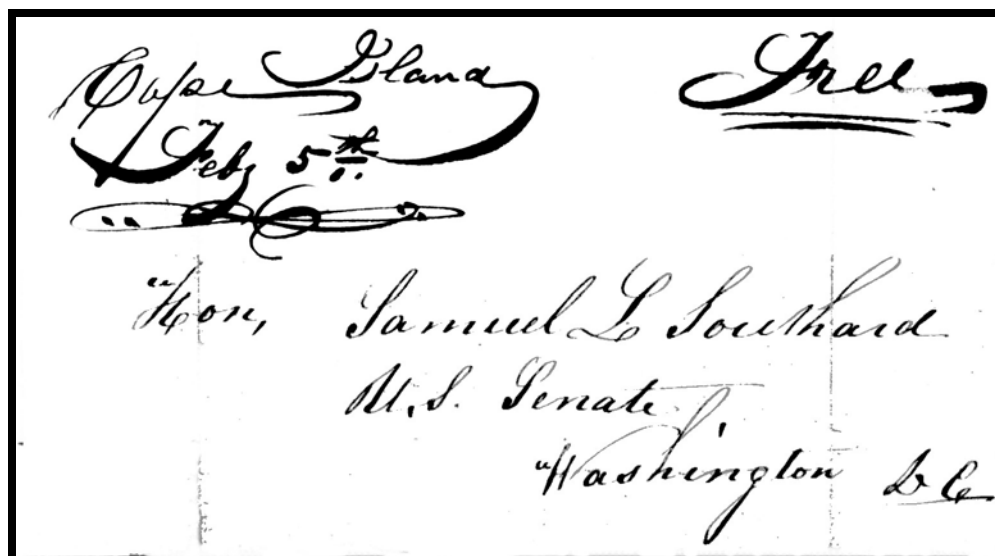 Cape Island
Feby 5th
Free
Hon, Samuel L Southard
U.S. Senate
Washington D C